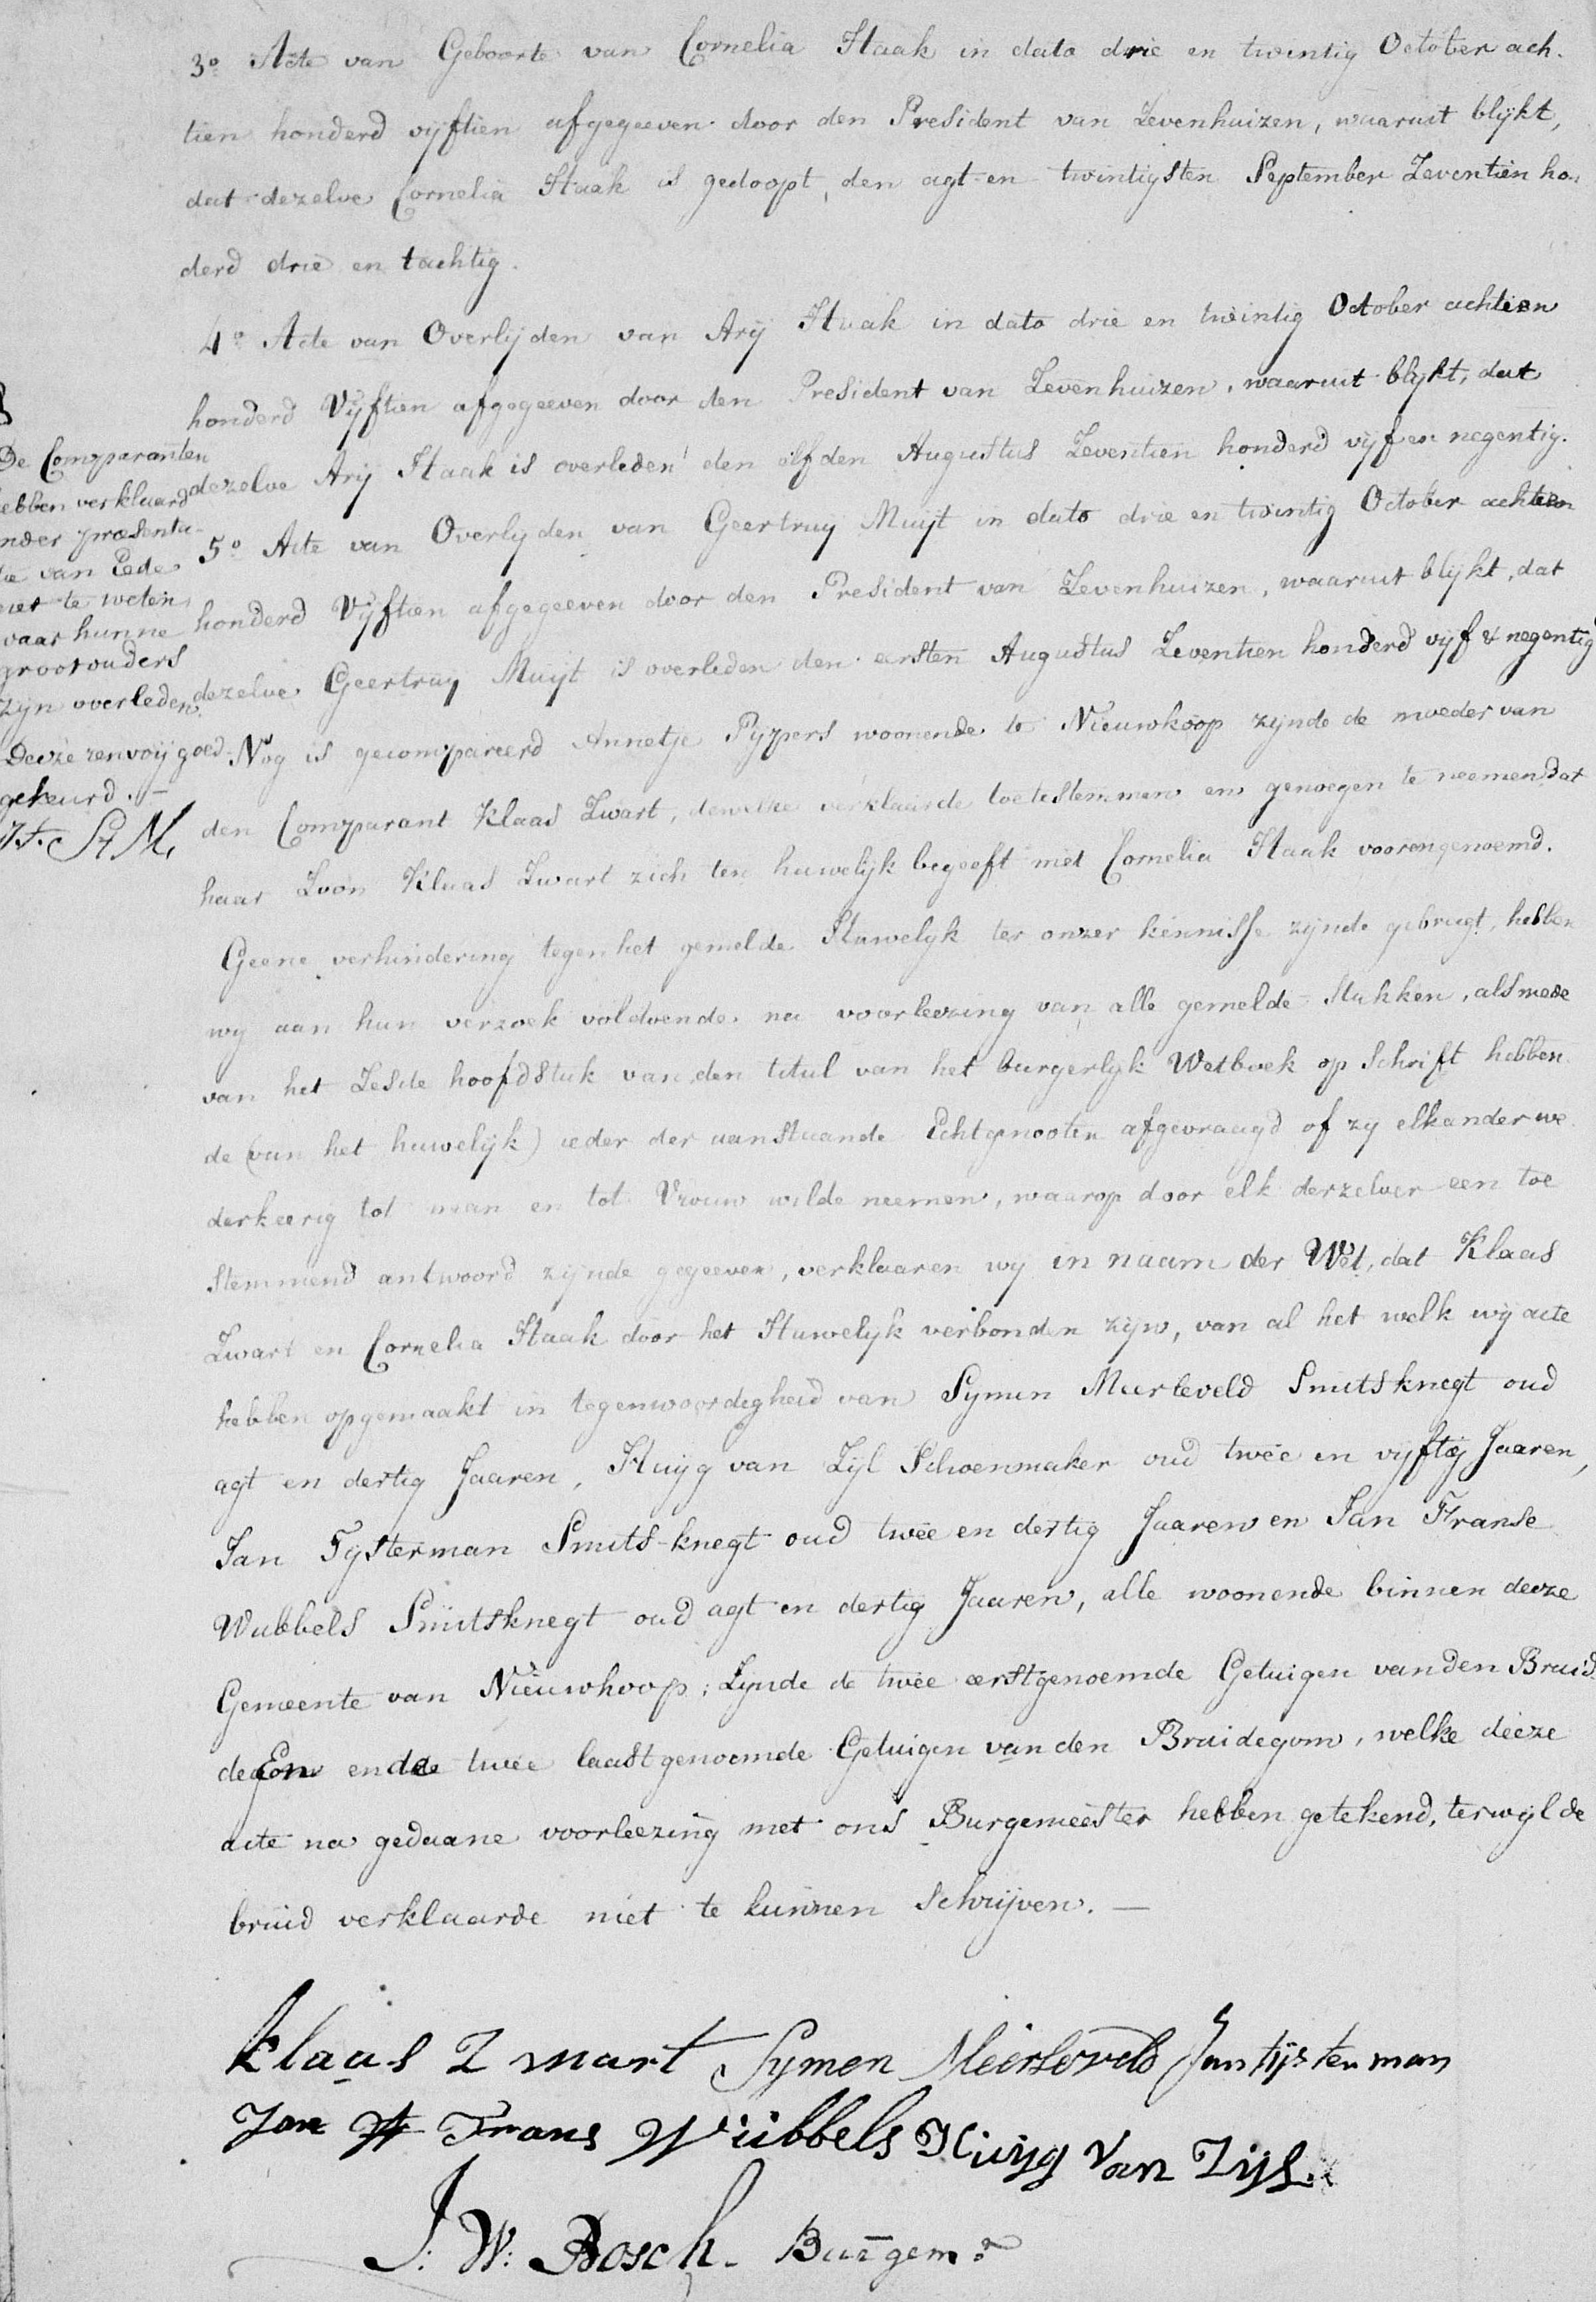 3o. Acte van Geboorte van Cornelia Haak in dato drie en twintig October ach-
tien honderd vyftien afgegeeven door den President van Zevenhuizen, waaruit blykt,
dat dezelve Cornelia Haak is gedoopt, den agt en twintigsten September Zeventien hon
derd drie en tachtig.
4o. Acte van Overlyden van Arij Haak in dato drie en twintig October achtien
honderd Vyftien afgegeeven door den President van Zevenhuizen, waaruit blykt, dat
dezelve Arij Haak is overleden den elfden Augustus Zeventien honderd vyf en negentig.
5o Acte van Overlyden van Geertruy Muijt in dato drie en twintig October achtien
honderd Vyftien afgegeeven door den President van Zevenhuizen, waaruit blykt, dat
dezelve Geertruy Muijt is overleden den eersten Augustus Zeventien honderd vyf & negentig
Nog is gecompareerd Annetje Pijpers woonende te Nieuwkoop zynde de moeder van
den Comparant Klaas Zwart, dewelke verklaarde toetestemmen en genoegen te neemen dat
haar Zoon Klaas Zwart zich ten huwelijk begeeft met Cornelia Haak voorengenoemd.
Geene verhindering tegen het gemelde Huwelyk ter onzer kennisse zynde gebragt, hebben
wy aan hun verzoek voldoende na voorleezing van alle gemelde Stukken, alsmede
van het Zesde hoofdstuk van den titul van het burgerlyk Wetboek op Schrift hebben
de (van het huwelijk) ieder der aanstaande Echtgenooten afgevraagd of zy elkander we
derkeerig tot man en tot Vrouw wilde neemen, waarop door elk derzelver een toe
stemmend antwoord zynde gegeeven, verklaaren wy in naam der Wet, dat Klaas
Zwart en Cornelia Haak door het Huwelyk verbonden zyn, van al het welk wij acte
hebben opgemaakt in tegenwoordigheid van Symen Meerleveld Smitsknegt oud
agt en dertig Jaaren, Huijg van Zijl Schoenmaker oud twee en vyftig Jaaren,
Jan Tijsterman Smits-knegt oud twee en dertig Jaaren en Jan Franse
Wubbels Smitsknegt oud agt en dertig Jaaren, alle woonende binnen deeze
Gemeente van Nieuwkoop; Zynde de twee eerstgenoemde Getuigen van den Bruid
degom en de twee laastgenoemde Getuigen van den Bruidegom, welke deeze
acte na gedaane voorleezing met ons Burgemeester hebben getekend, terwyl de
bruid verklaarde niet te kunnen Schryven. —
De Comparanten
ebben verklaard
nder præsenta-
tie van Eede
niet te weten
waar hunne
grootouders
zijn overleden.
Deeze renvoij goed
gekeurd. —
klaas Zwart Symen Meerleveld Jan tijsterman
Jan Frans Wubbels Huijg Van Zijl.
J: W: Bosch. Burgemr.